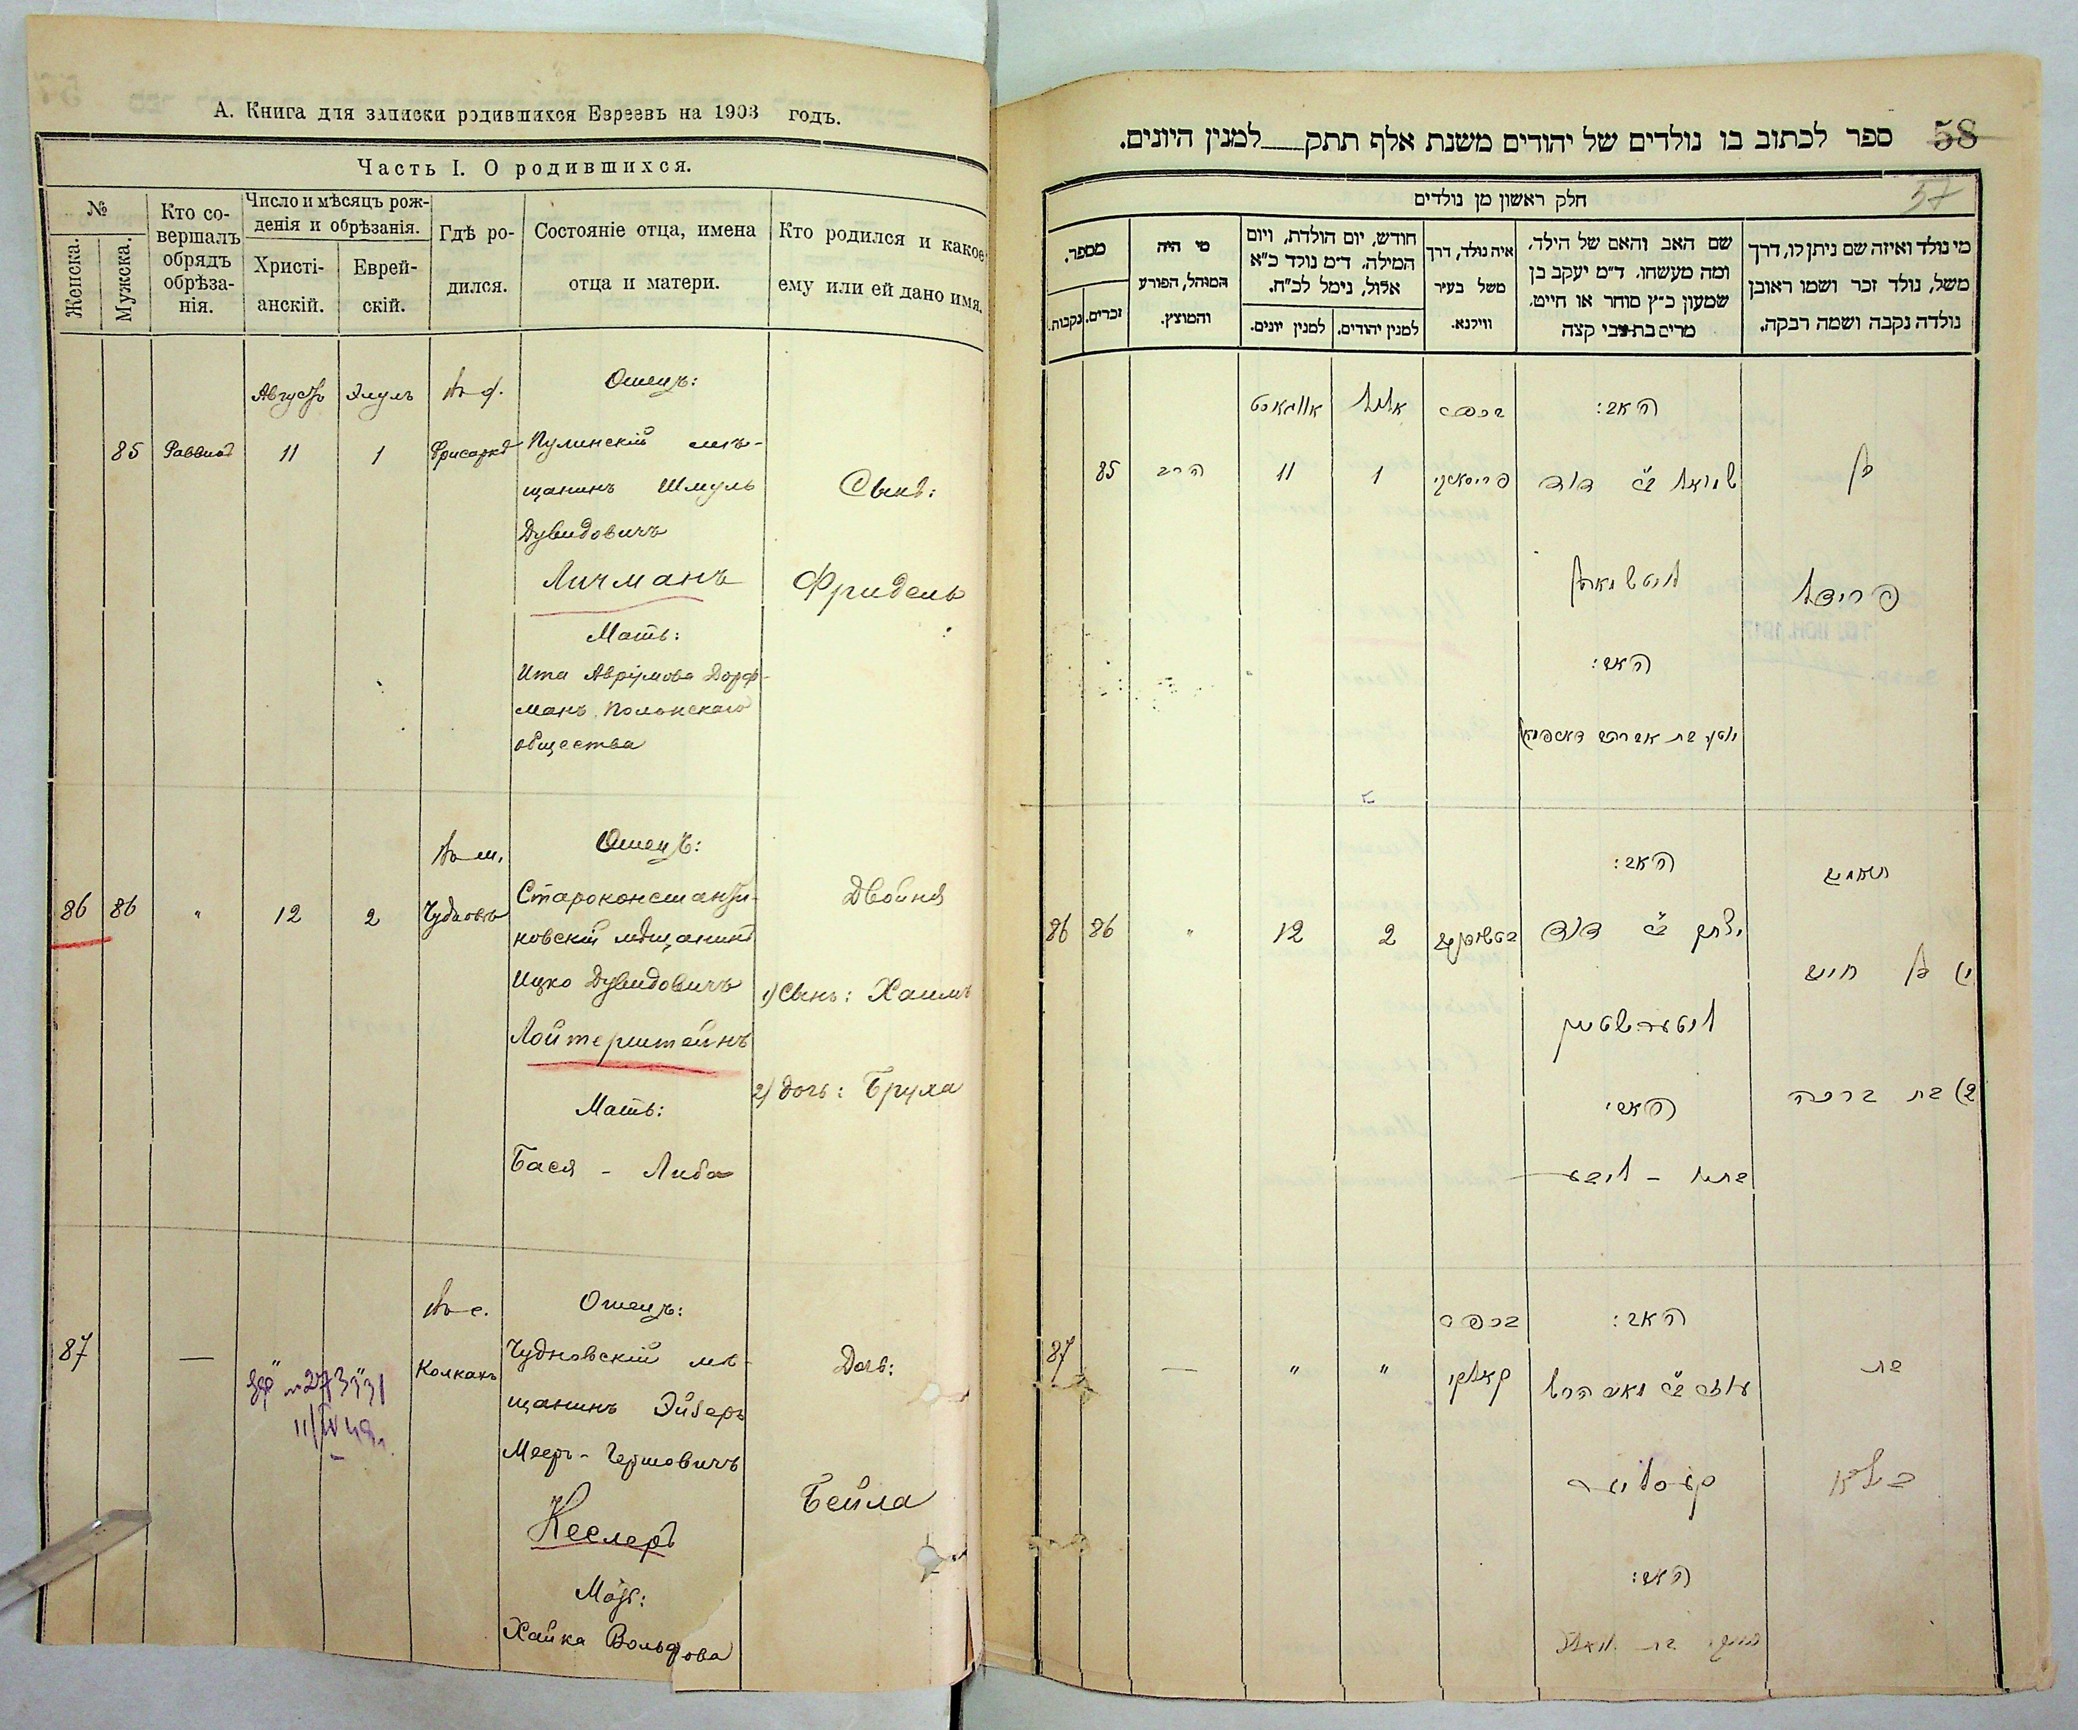 А. Книга для записки родившихся Евреевъ на 1903 годъ.
Часть I. О родившихся.
№
Женска.
Мужска.
Кто со-
вершалъ
обрядъ
обрѣза-
нія.
Число и мѣсяцъ рож-
денія и обрѣзанія.
Христі-
анскій.
Еврей-
скій.
Гдѣ ро-
дился.
Состояніе отца, имена
отца и матери.
Кто родился и какое
ему или ей дано имя.
Августъ Элулъ Въ ф. Отецъ:
85 Раввинъ 11 1 Пулинскій мѣ-
щанинъ Шмуль
Дувидовичъ
Личманъ
Мать:
Ита Аврумова Дорф-
манъ Полонскаго
общества
Сынъ:
Фридель
Въ м. Отецъ:
86 86 " 12 2 Чудновъ Староконстанти-
новскій мѣщанинъ
Ицко Дувидовичъ
Лойтерштейнъ
Мать:
Бася - Либа
Двойня
1) Сынъ: Хаимъ
2) Дочь: Бруха
Въ с. Отецъ:
87 — Колкахъ Чудновскій мѣ-
щанинъ Эйзеръ
Мееръ - Гершовичъ
Кеслеръ
Мать:
Хайка Вольфова
Дочь:
Бейла
58
57
ספר לכתוב בו נולדים של יהודים משנת אלף תתק למנין היונים.
חלק ראשון מן נולדים
מספר.
נקבות.
זכרים.
מי היה
המוהל, הפורע
והמוצץ.
חודש, יום הולדת, ויום
המילה. ד״מ נולד כ״א
אלול, נימל לכ״ח.
למנין יונים.
למנין יהודים.
איה נולד, דרך
משל בעיר
ווילנא.
שם האב והאם של הילד,
ומה מעשהו. ד״מ יעקב בן
שמעון כ״ץ סוחר או חייט.
מרים בת צבי קצה
מי נולד ואיזה שם ניתן לו, דרך
משל, נולד זכר ושמו ראובן
נולדה נקבה ושמה רבקה.
האב: אלול אווגוסט
85 הרב 11 1 שמואל ב״ר דוד
בן
ליטשמאן
פרידל
האם:
האב:
תאומים
86 86 " 12 2 יצחק ב״ר דוד
1) בן חיים
לויטערשטיין
2) בת ברכה
האם:
בתיה - ליבע
האב:
87 — " " קאלקי
בת
קעסליער
ביילא
האם: